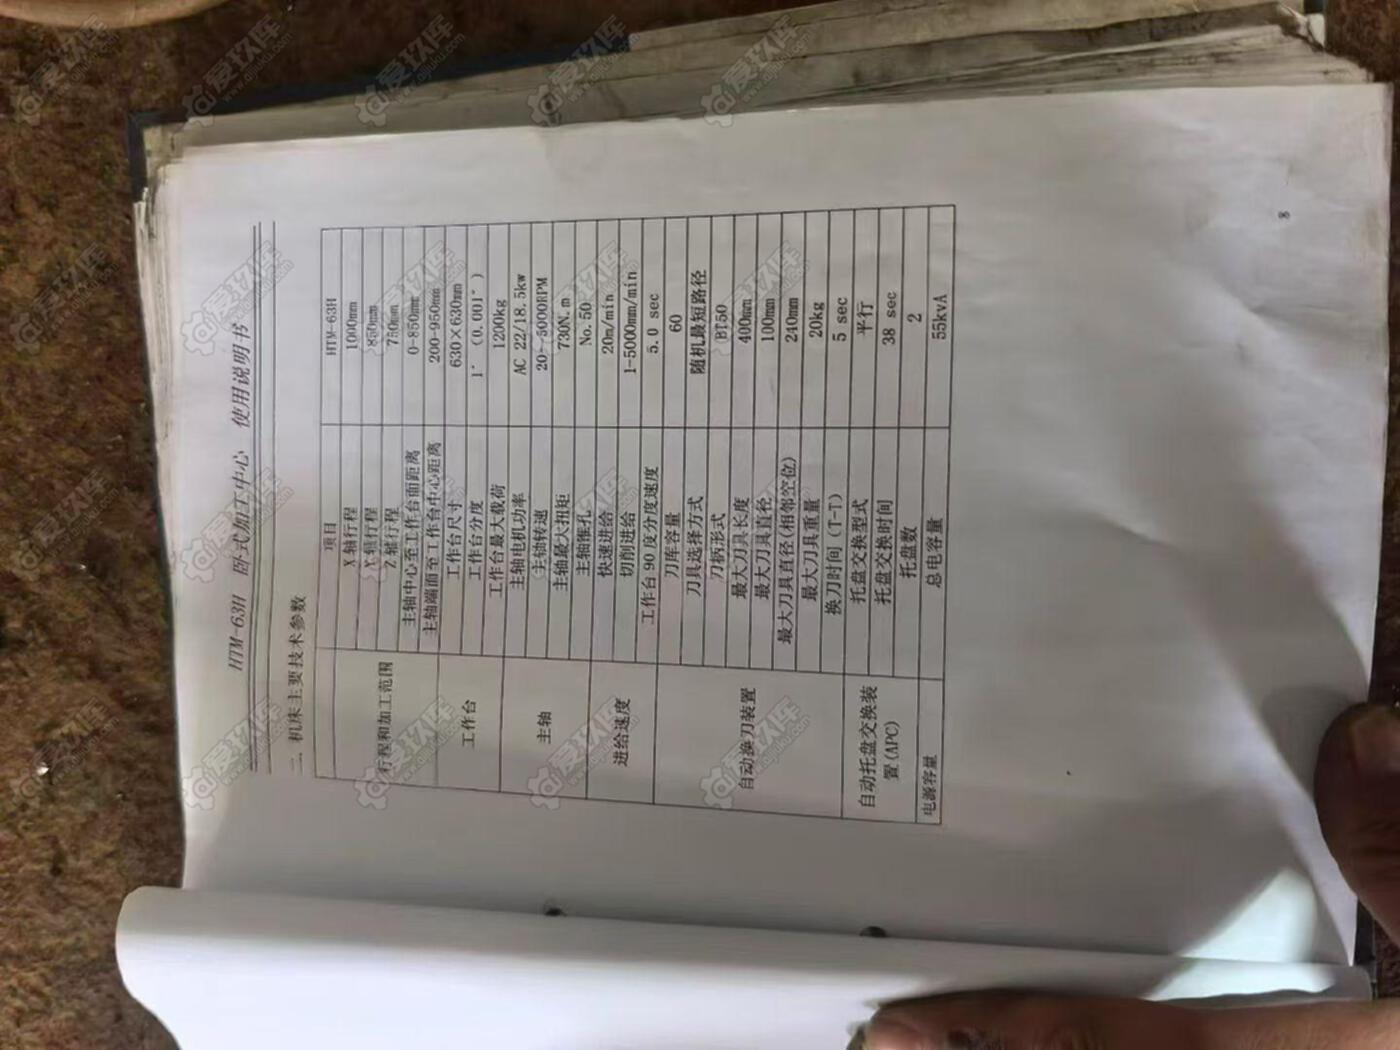 HTM-63H 卧式加工中心 使用说明书
二、机床主要技术参数
项目 HTM-63H
行程和加工范围
X 轴行程 1000mm
Y 轴行程 850mm
Z 轴行程 750mm
主轴中心至工作台面距离 0-850mm
主轴端面至工作台中心距离 200-950mm
工作台
工作台尺寸 630×630mm
工作台分度 1°(0.001°)
工作台最大载荷 1200kg
主轴
主轴电机功率 AC 22/18.5kw
主轴转速 20--5000RPM
主轴最大扭矩 730N.m
主轴锥孔 No.50
进给速度
快速进给 20m/min
切削进给 1-5000mm/min
工作台 90 度分度速度 5.0 sec
自动换刀装置
刀库容量 60
刀具选择方式 随机最短路径
刀柄形式 BT50
最大刀具长度 400mm
最大刀具直径 100mm
最大刀具直径(相邻空位) 240mm
最大刀具重量 20kg
换刀时间 (T-T) 5 sec
自动托盘交换装置(APC)
托盘交换型式 平行
托盘交换时间 38 sec
托盘数 2
电源容量 总电容量 55kvA
8
爱玖库
www.aijiuku.com